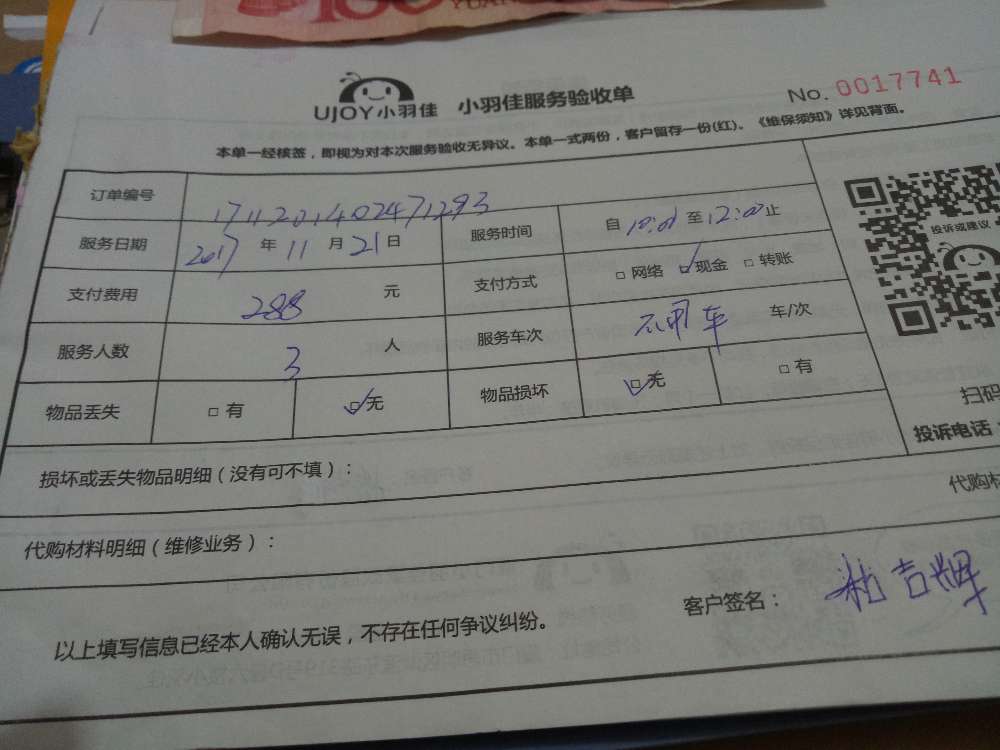 100 YUAN
UJOY小羽佳 小羽佳服务验收单 No. 0017741
本单一经核签，即视为对本次服务验收无异议。本单一式两份，客户留存一份(红)。《维保须知》详见背面。
订单编号 1711201402471293
服务日期 2017 年 11 月 21 日 服务时间 自 10:01 至 12:00 止
投诉或建议
支付费用 288 元 支付方式 □ 网络 ☑ 现金 □ 转账
服务人数 3 人 服务车次 不用车 车/次
物品丢失 □ 有 ☑ 无 物品损坏 ☑ 无 □ 有
扫码
投诉电话：
损坏或丢失物品明细（没有可不填）：
代购材
代购材料明细（维修业务）：
客户签名： 粘吉牌
以上填写信息已经本人确认无误，不存在任何争议纠纷。